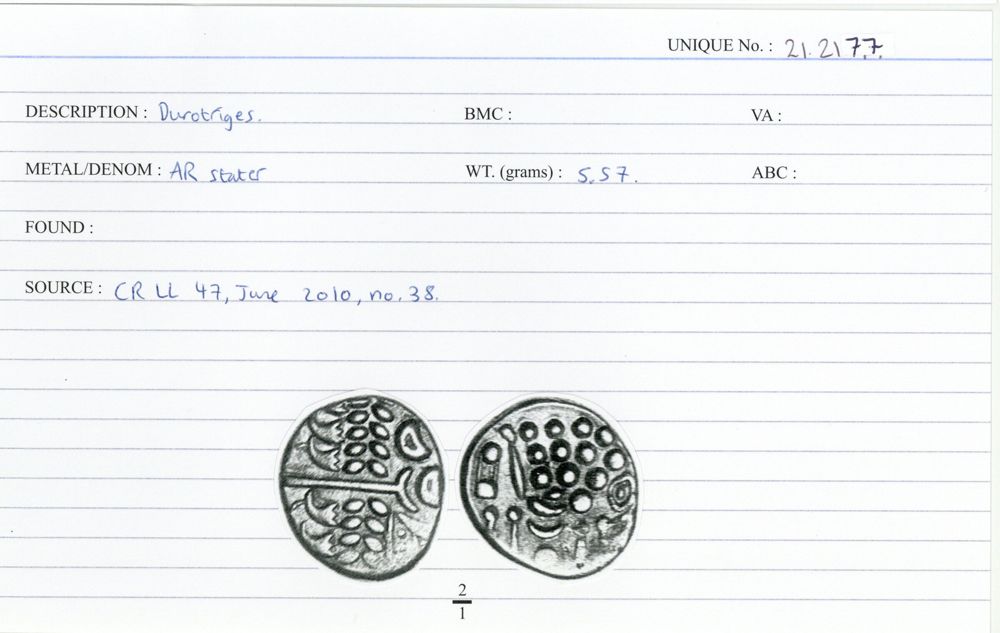 UNIQUE No. : 21.2177.
DESCRIPTION : Durotriges. BMC : VA :
METAL/DENOM : AR stater WT. (grams) : 5.57. ABC :
FOUND :
SOURCE : CR LL 47, June 2010, no. 38.
2
1